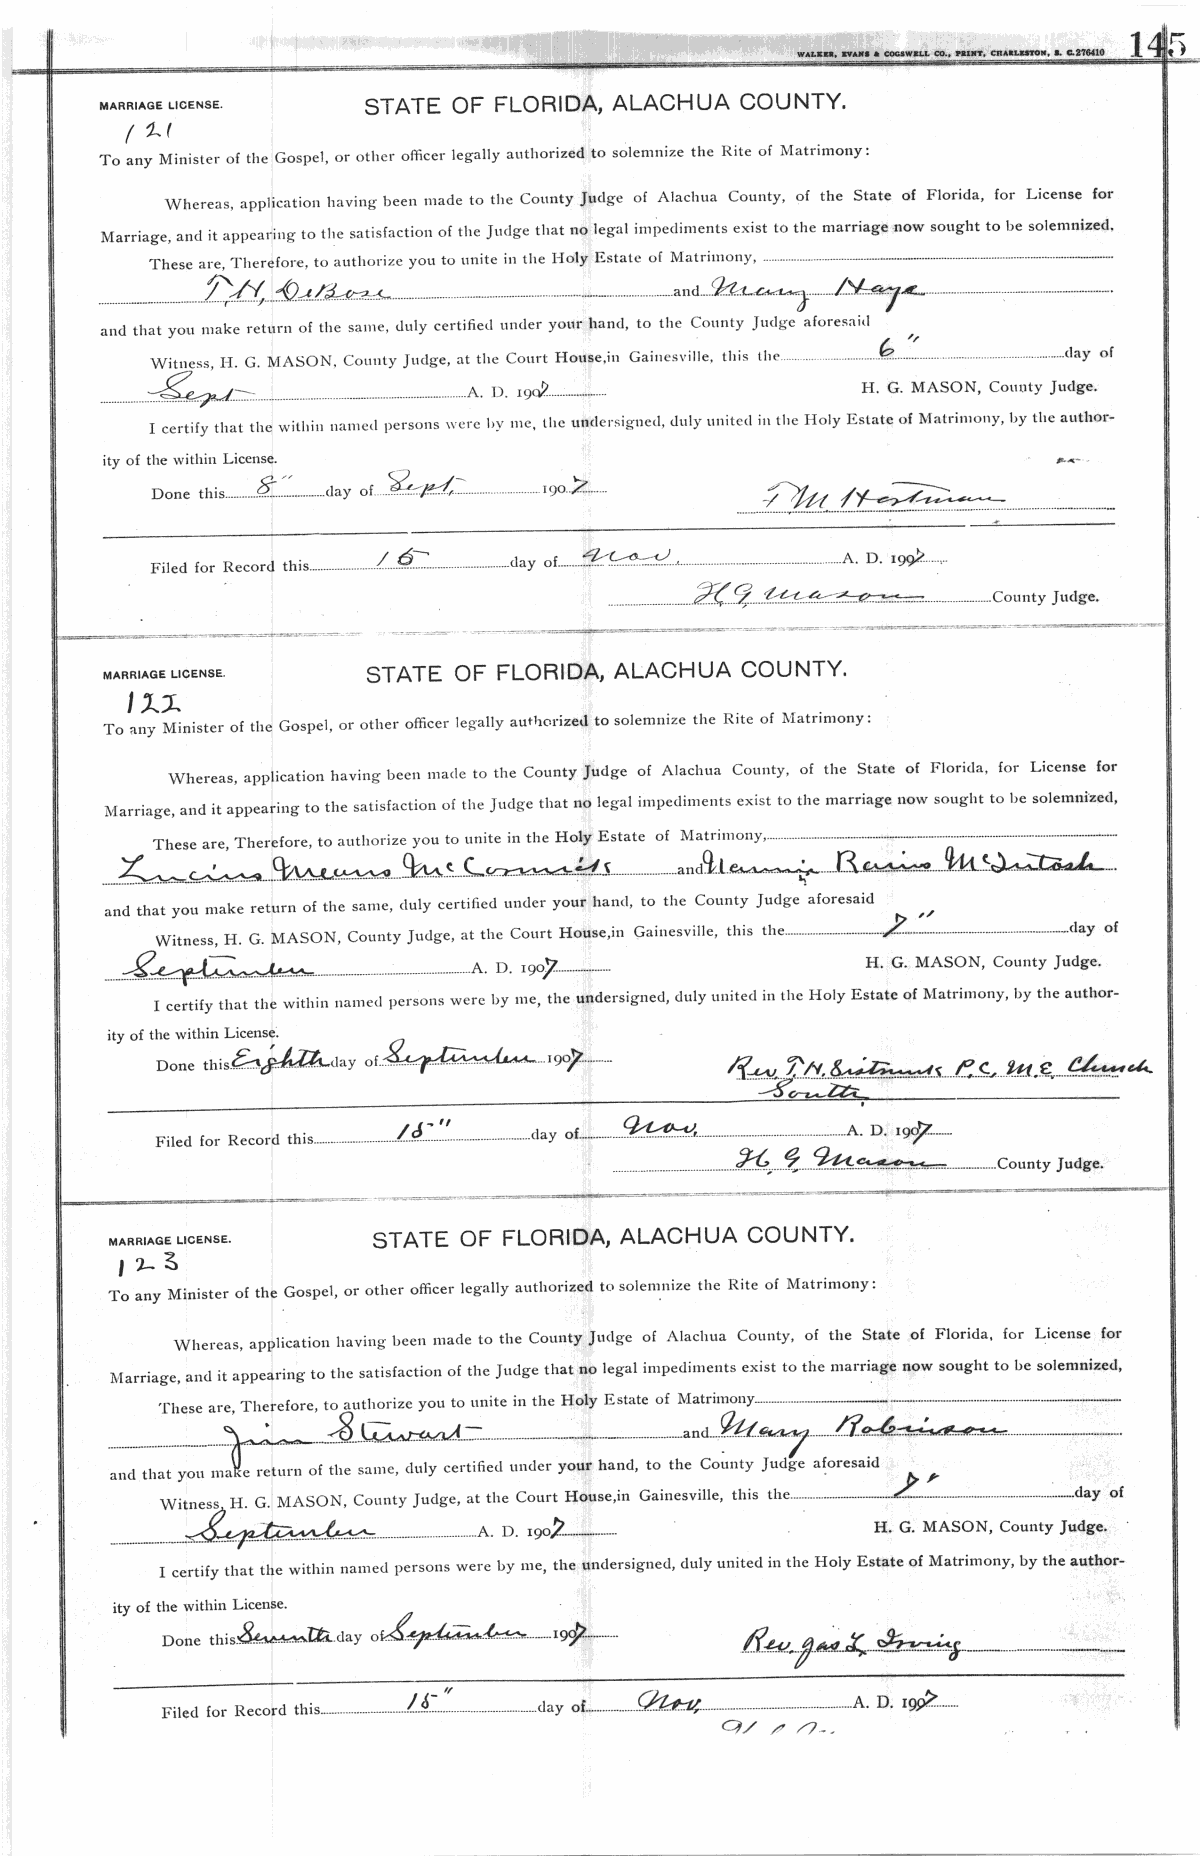 WALKER, EVANS & COGSWELL CO., PRINT, CHARLESTON, S. C. 276410 145
MARRIAGE LICENSE. STATE OF FLORIDA, ALACHUA COUNTY.
121
To any Minister of the Gospel, or other officer legally authorized to solemnize the Rite of Matrimony:
Whereas, application having been made to the County Judge of Alachua County, of the State of Florida, for License for
Marriage, and it appearing to the satisfaction of the Judge that no legal impediments exist to the marriage now sought to be solemnized,
These are, Therefore, to authorize you to unite in the Holy Estate of Matrimony,
T, H, DeBose and Mary Hays
and that you make return of the same, duly certified under your hand, to the County Judge aforesaid
Witness, H. G. MASON, County Judge, at the Court House, in Gainesville, this the 6" day of
Sept A. D. 1907 H. G. MASON, County Judge.
I certify that the within named persons were by me, the undersigned, duly united in the Holy Estate of Matrimony, by the author-
ity of the within License.
Done this 8" day of Sept, 1907 T. M. Hartman
Filed for Record this 15 day of Nov, A. D. 1907
H, G, Mason County Judge.
MARRIAGE LICENSE. STATE OF FLORIDA, ALACHUA COUNTY.
122
To any Minister of the Gospel, or other officer legally authorized to solemnize the Rite of Matrimony:
Whereas, application having been made to the County Judge of Alachua County, of the State of Florida, for License for
Marriage, and it appearing to the satisfaction of the Judge that no legal impediments exist to the marriage now sought to be solemnized,
These are, Therefore, to authorize you to unite in the Holy Estate of Matrimony,
Lucius Means McCormick and Nannie Rains McIntosh
and that you make return of the same, duly certified under your hand, to the County Judge aforesaid
Witness, H. G. MASON, County Judge, at the Court House, in Gainesville, this the 7" day of
September A. D. 1907 H. G. MASON, County Judge.
I certify that the within named persons were by me, the undersigned, duly united in the Holy Estate of Matrimony, by the author-
ity of the within License.
Done this Eighth day of September 1907 Rev. T. H. Sistrunk P. C, M. E. Church
South,
Filed for Record this 15" day of Nov, A. D. 1907
H, G, Mason County Judge.
MARRIAGE LICENSE. STATE OF FLORIDA, ALACHUA COUNTY.
123
To any Minister of the Gospel, or other officer legally authorized to solemnize the Rite of Matrimony:
Whereas, application having been made to the County Judge of Alachua County, of the State of Florida, for License for
Marriage, and it appearing to the satisfaction of the Judge that no legal impediments exist to the marriage now sought to be solemnized,
These are, Therefore, to authorize you to unite in the Holy Estate of Matrimony
Jim Stewart and Mary Robinson
and that you make return of the same, duly certified under your hand, to the County Judge aforesaid
Witness, H. G. MASON, County Judge, at the Court House, in Gainesville, this the 7" day of
September A. D. 1907 H. G. MASON, County Judge.
I certify that the within named persons were by me, the undersigned, duly united in the Holy Estate of Matrimony, by the author-
ity of the within License.
Done this Seventh day of September 1907 Rev. Jas L, Irving
Filed for Record this 15" day of Nov, A. D. 1907